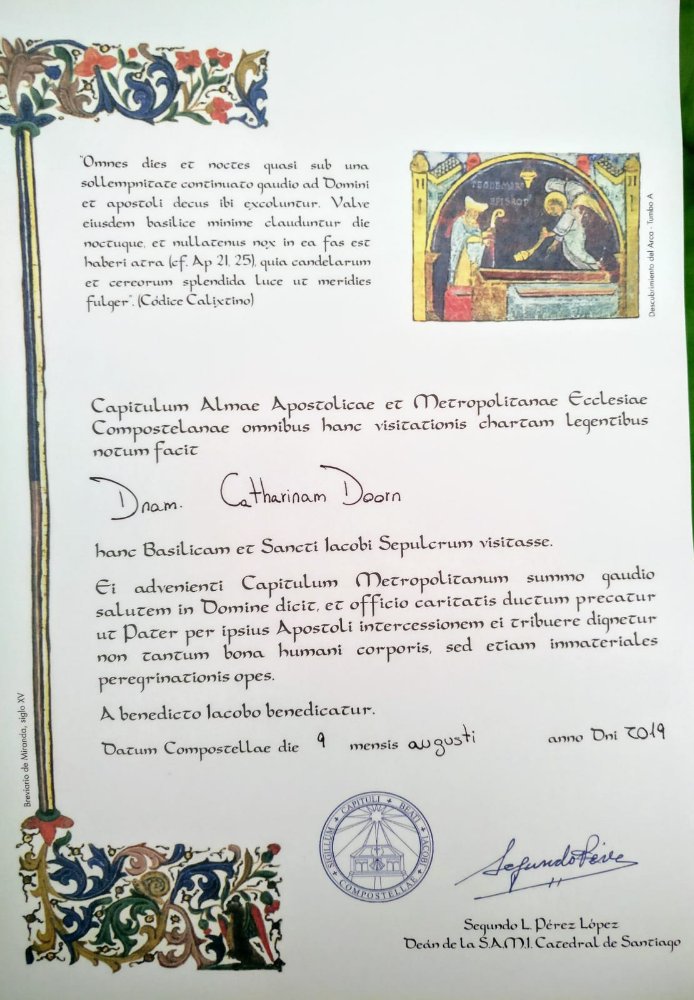 "Omnes dies et noctes quasi sub una
sollempnitate continuato gaudio ad Domini
et apostoli decus ibi excoluntur. Valve
eiusdem basilice minime clauduntur die
noctuque, et nullatenus nox in ea fas est
haberi atra (cf. Ap 21, 25), quia candelarum
et cereorum splendida luce ut meridies
fulget". (Códice Calixtino)
TEODEMIRUS
EPISCOP
Descubrimiento del Arca - Tumbo A
Capitulum Almae Apostolicae et Metropolitanae Ecclesiae
Compostelanae omnibus hanc visitationis chartam legentibus
notum facit
Dnam. Catharinam Doorn
hanc Basilicam et Sancti Iacobi Sepulcrum visitasse.
Ei advenienti Capitulum Metropolitanum summo gaudio
salutem in Domine dicit, et officio caritatis ductum precatur
ut Pater per ipsius Apostoli intercessionem ei tribuere dignetur
non tantum bona humani corporis, sed etiam inmateriales
peregrinationis opes.
A benedicto Iacobo benedicatur.
Datum Compostellae die 9 mensis augusti anno Dni 2019
Breviario de Miranda, siglo XV
SIGILLUM + CAPITULI + BEATI + IACOBI + COMPOSTELLAE +
Segundo Pérez
Segundo L. Pérez López
Deán de la S.A.M.I. Catedral de Santiago